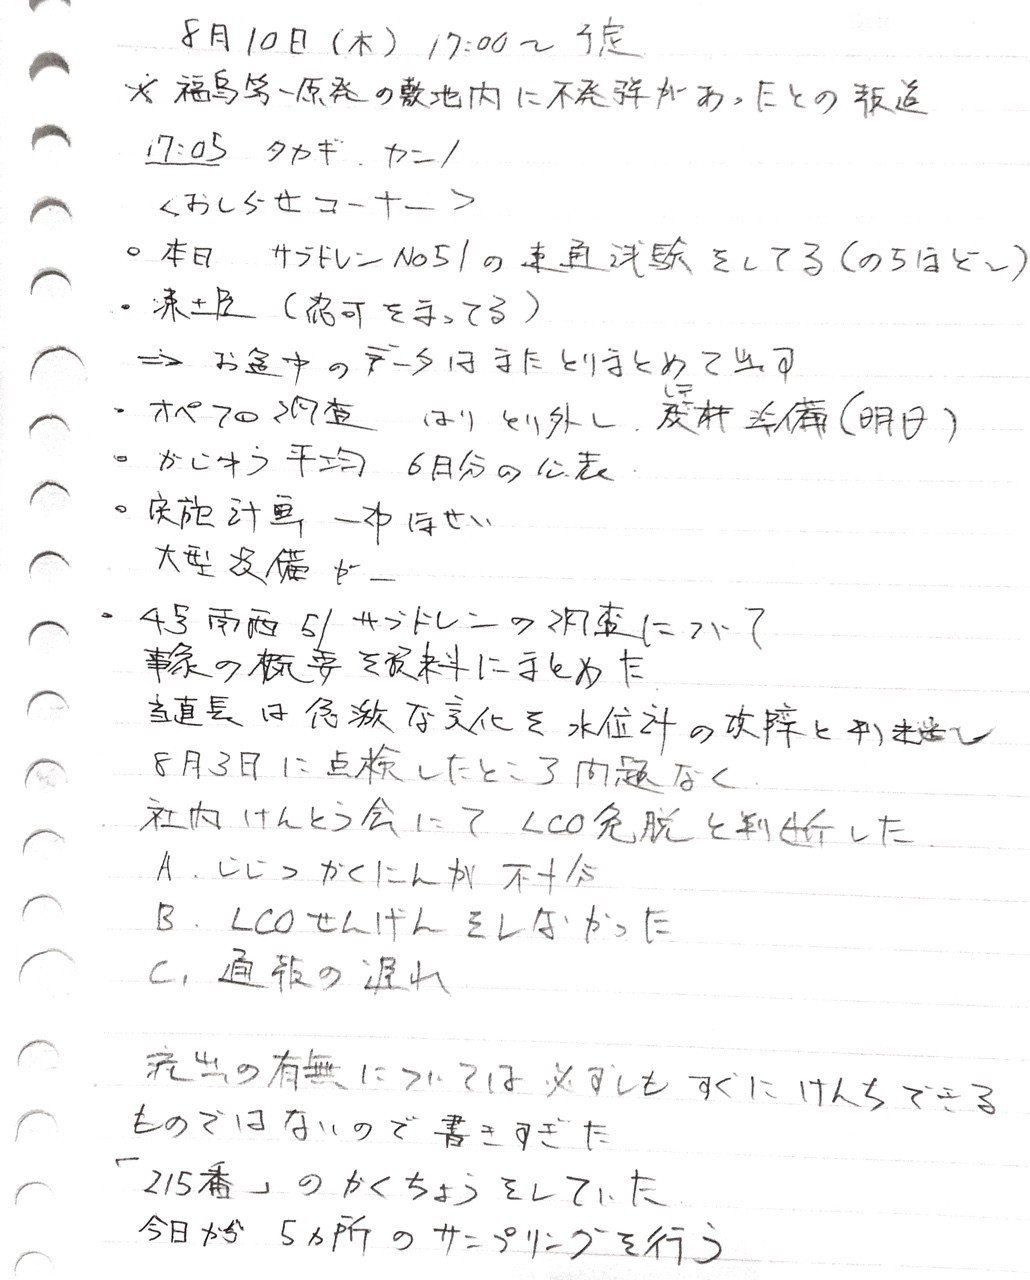 8月10日(木) 17:00〜 予定
※ 福島第一原発の敷地内に不発弾があったとの報道
17:05 タカギ. カンノ
<おしらせコーナー>
○ 本日 サブドレンNo51の連通試験をしてる(のちほど〜)
・凍土壁 (認可をまってる)
⇒ お盆中のデータはまたとりまとめて出す
・オペフロ調査 はりとり外し. 資料準備(明日)
○ かじゅう平均 6月分の公表
○ 実施計画 一部ほせい
大型設備が―
・4号南西51サブドレンの調査について
事象の概要を資料にまとめた
当直長は急激な変化を水位計の故障と判断し
8月3日に点検したところ問題なく
社内けんとう会にてLCO逸脱と判断した.
A. じじつかくにんが不十分
B. LCOせんげんをしなかった
C, 通報の遅れ
流出の有無については必ずしもすぐにけんちできる
ものではないので書きすぎた
「215番」のかくちょうをしていた.
今日から 5ヵ所のサンプリングを行う